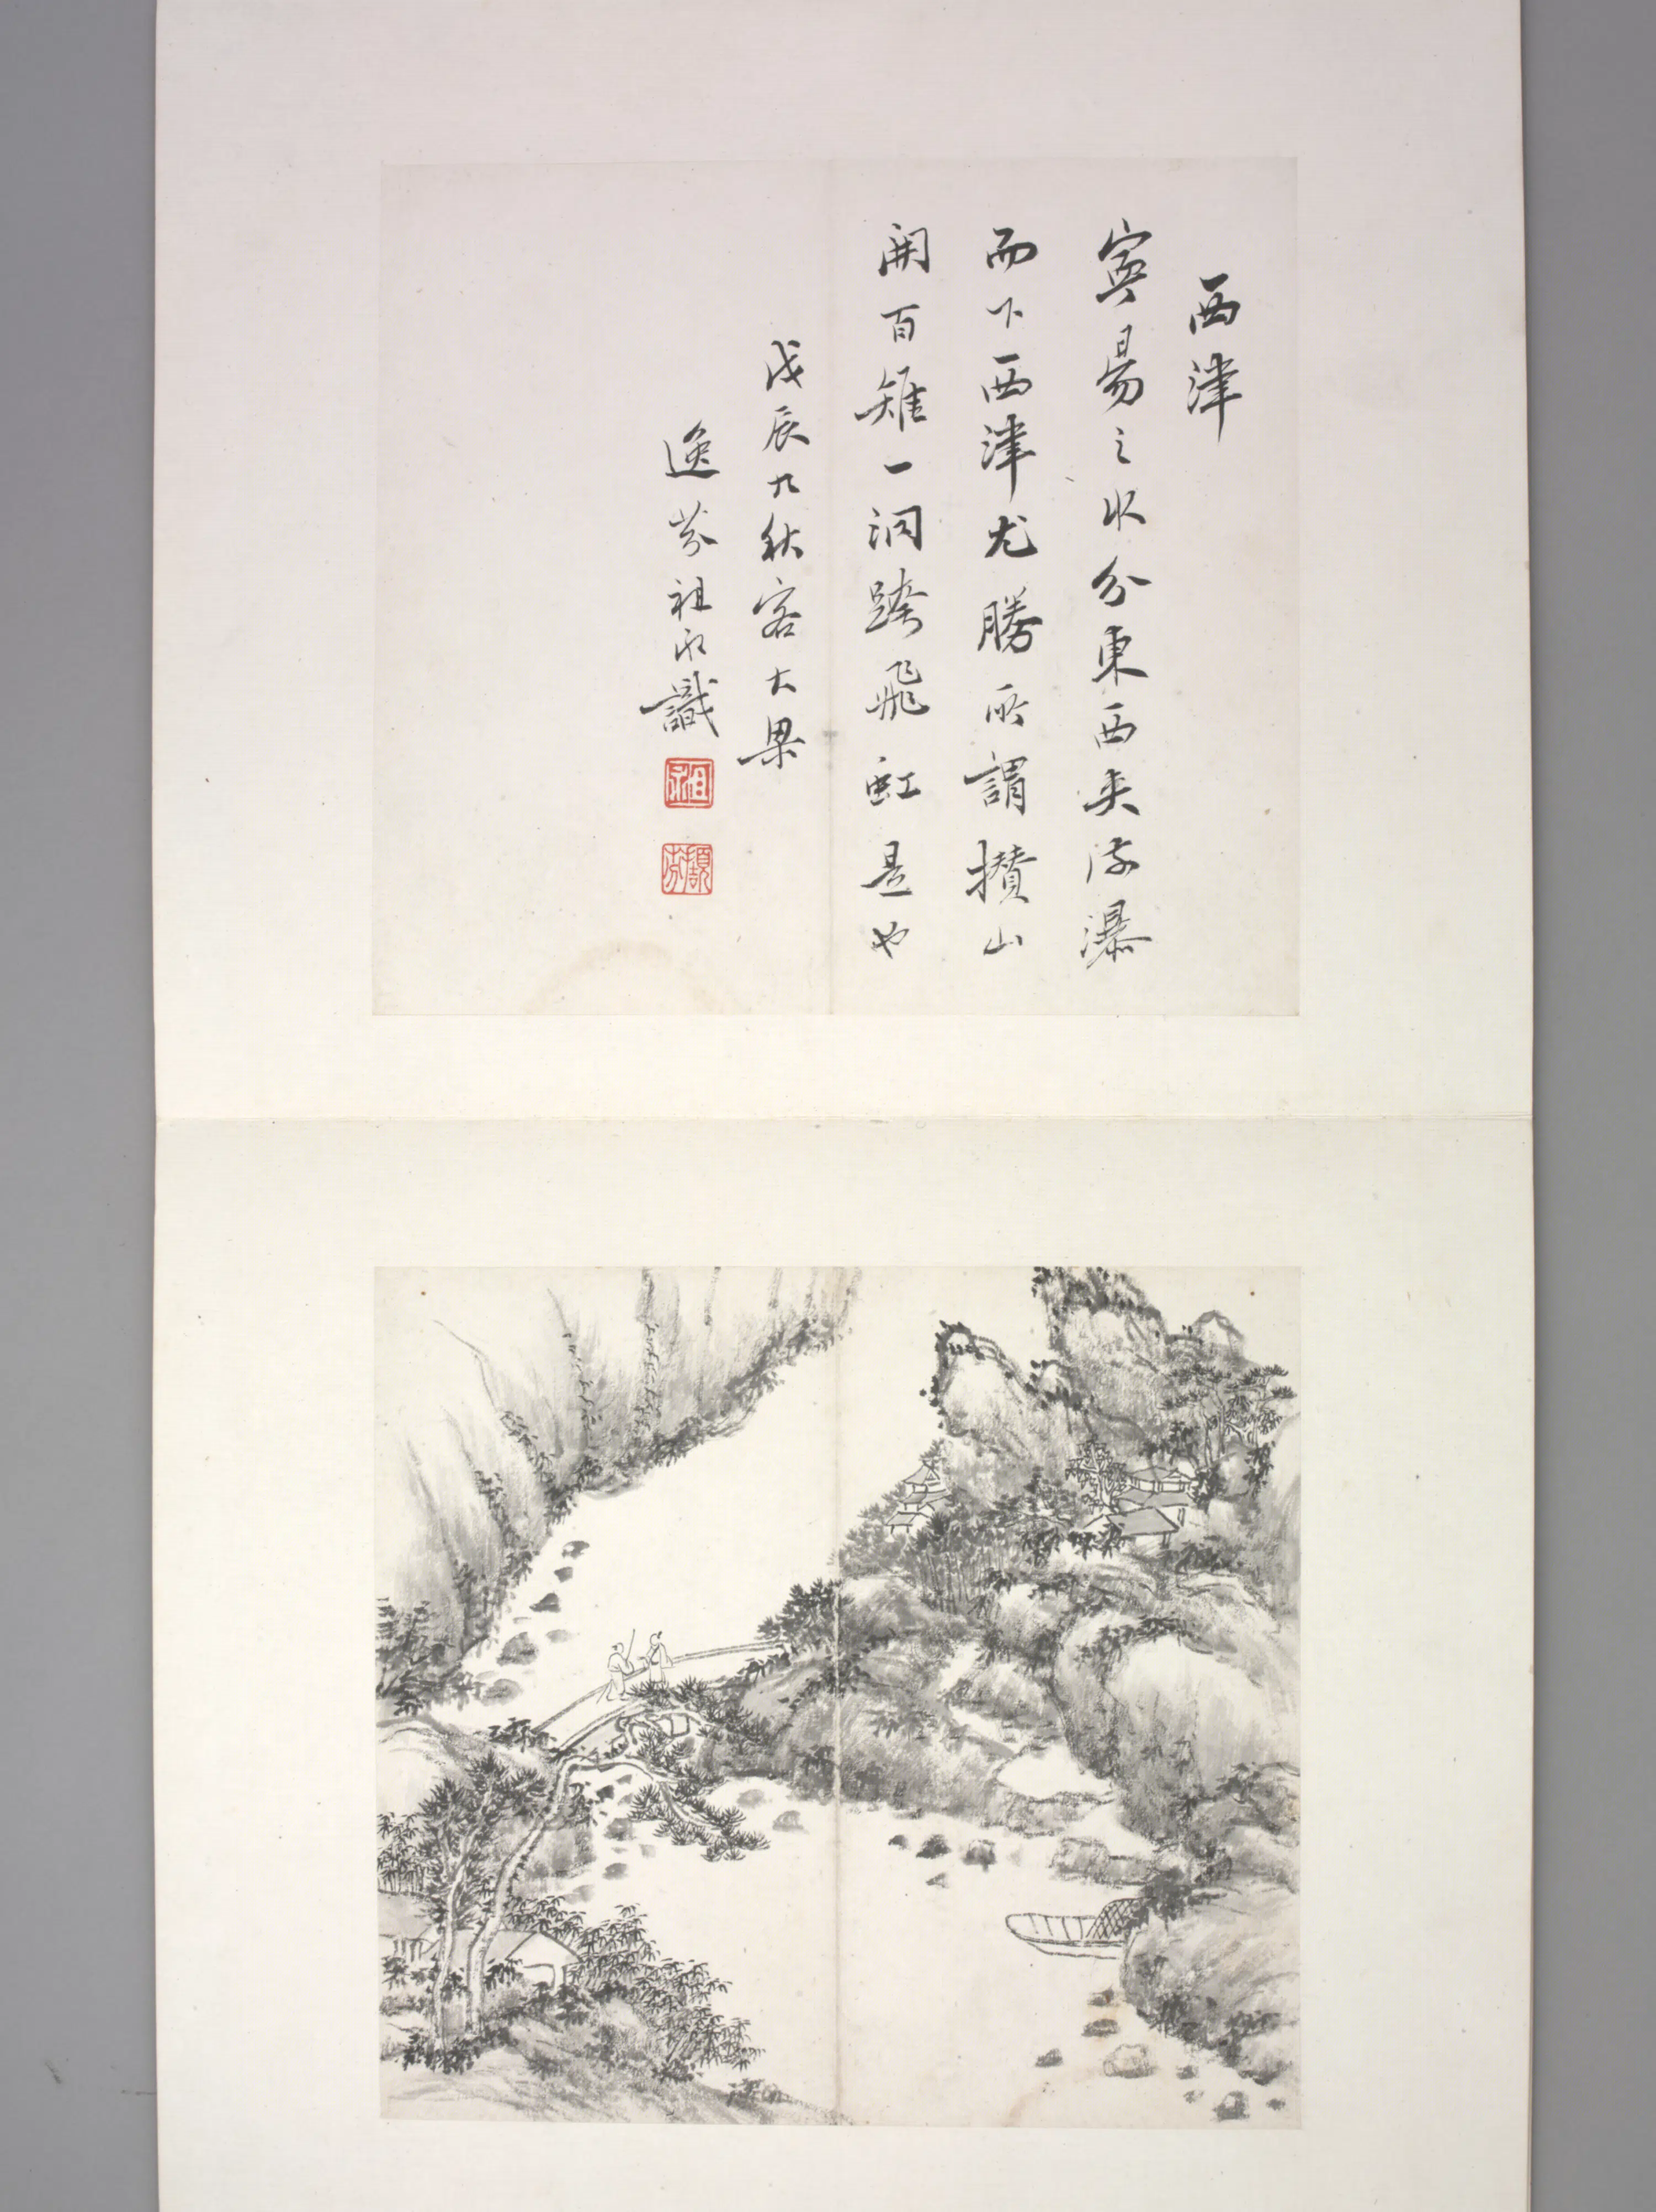 西津
寅昜之水分東西夾流瀑
而下西津尤勝所謂攢山
開百雉一洞跨飛虹是也
戊辰九秋客大梁
逸芬祖永識
祖永
擷芬